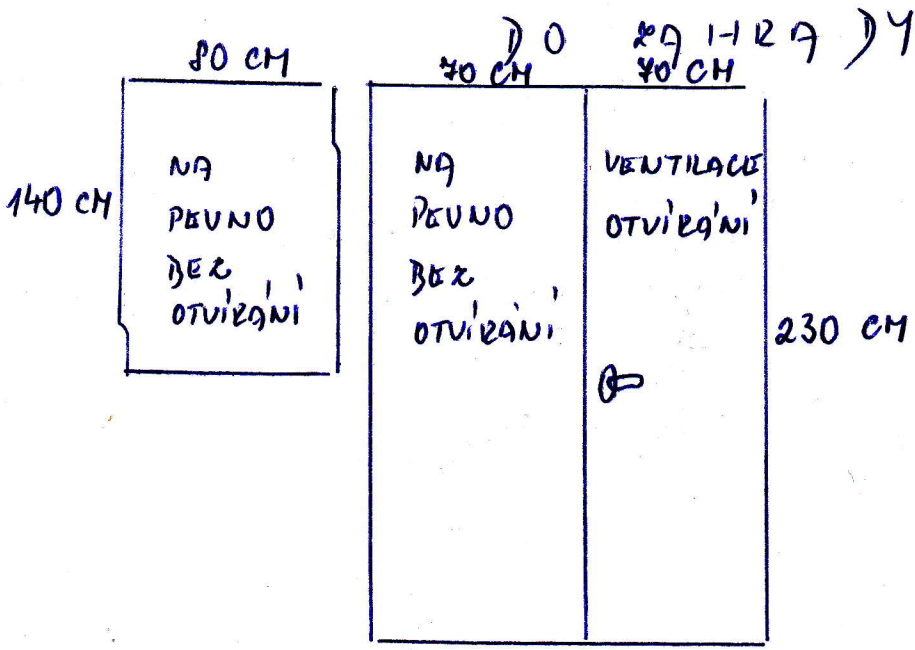 DO ZAHRADY
80 CM
70 CM
70 CM
140 CM
NA
PEVNO
BEZ
OTVÍRÁNÍ
NA
PEVNO
BEZ
OTVÍRÁNÍ
VENTILACE
OTVÍRÁNÍ
230 CM